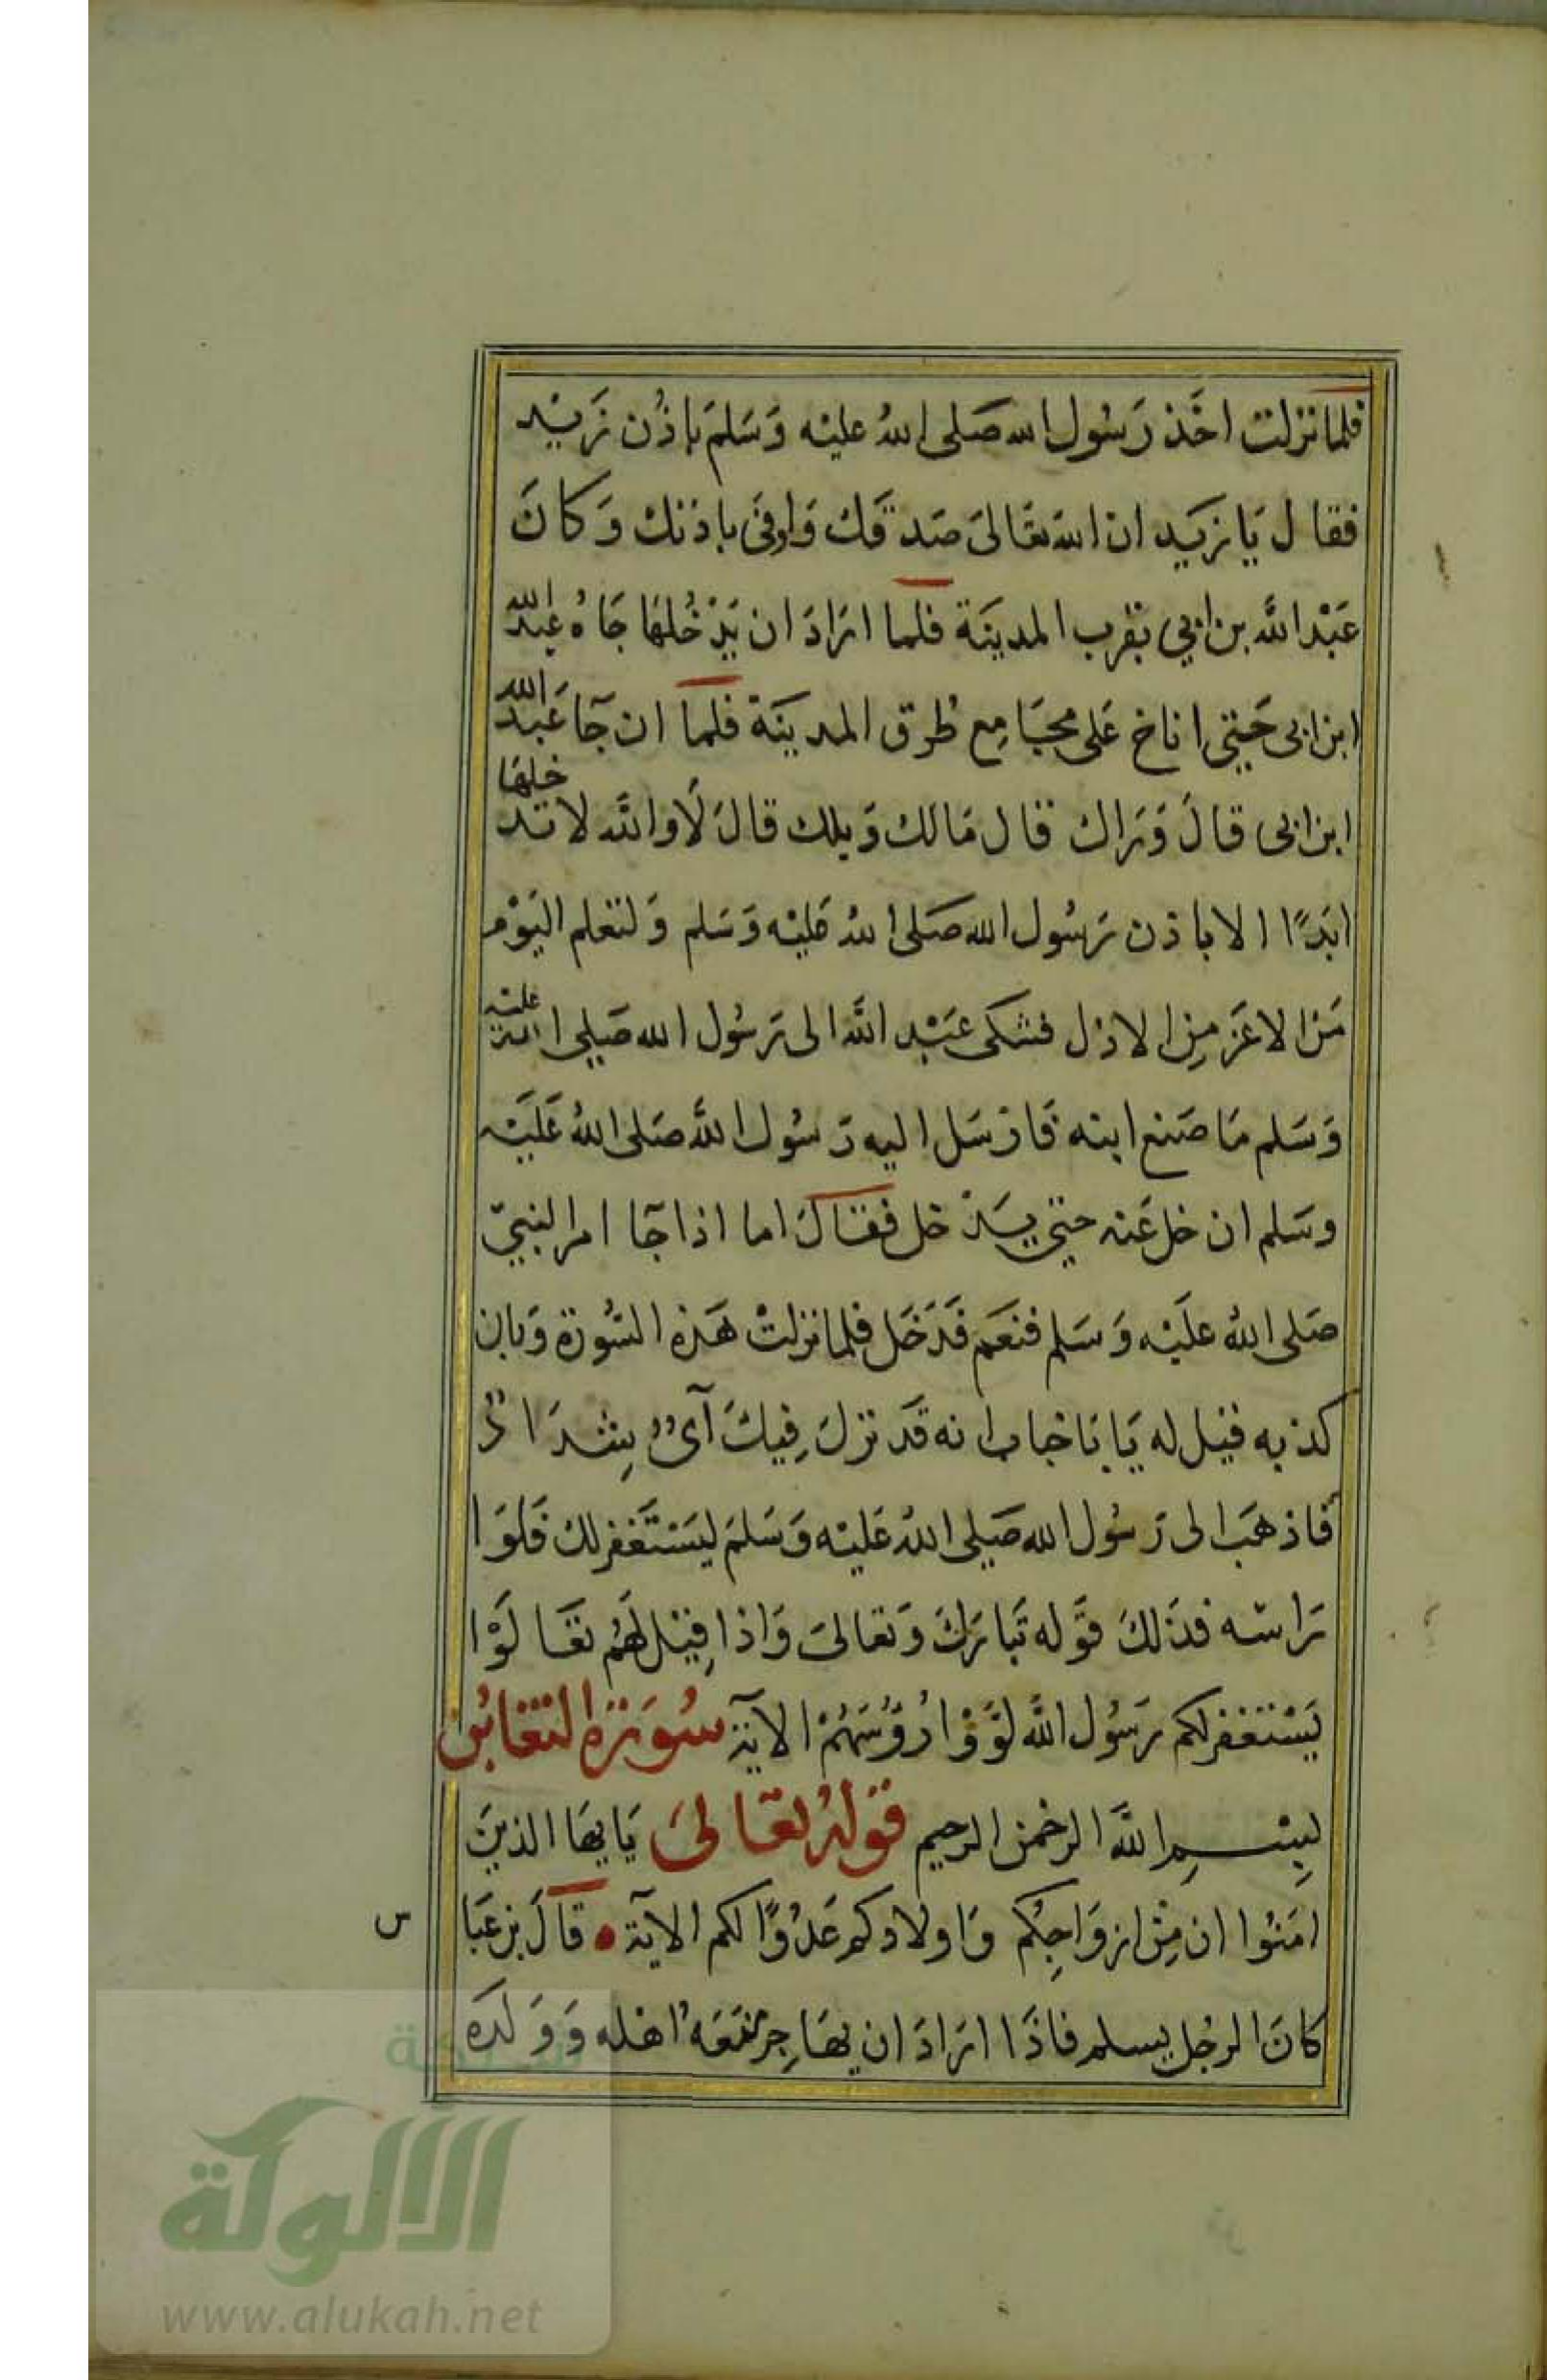 فلما نزلت اخَذ رَسُول الله صَلى اللهُ عليْه وَسَلمَ باذُن زَيْد
فقال يَا زيَد ان الله تعَالىَ صَدقَك وَاوفىَ باذنك وَكانَ
عَبْد اللَّه بن ابي بقرب المدينَة فلما ارَادَ ان يَدْخُلهَا جَاهُ عَبد الله
ابن ابي حَتي اناخ عَلى مجَامِع طُرق المدينَة فلما ان جَآ عَبد الله
ابن ابي قالَ وَرَاك قال مَالك وَيلك قالَ لَا واللَّه لا تدخلهَا
ابَدًا الا باذن رَسُول الله صَلى اللهُ عَليْه وَسَلم وَلتعلم اليَوْم
مَن الاعَز مِن الاذل فشكى عَبْد اللَّه الى رَسُول الله صَلي الله عليْه
وَسَلم مَا صَنع ابنه فَارْسَل اليه رَسُول اللَّه صَلى اللهُ عَليَه
وسَلم ان خل عَنه حتي يدْخل فقالَ اما اذا جَآ امر النبيّ
صَلى اللهُ علَيْه وَسَلم فنعَم فَدَخَل فلما نزلتْ هَذه السُّورَة وَبان
كذبه فقيل له يَا بَا خباب انه قَد نزلَ فِيكَ آىٌ شِدَادٌ
فَاذهَب الى رَسُول الله صَلي اللهُ عَليْه وَسَلمَ ليَسْتَغفر لك فَلوَا
رَاسَه فذَلكَ قوَله تَبارَكَ وَتعالىَ وَاذا قِيْل لَهُم تعَالَوْا
يَسْتغفر لكم رَسُول اللَّه لوَّوْا رُؤُسَهُمْ الآيَة سُورَة التغابُن
بِسْمِ اللَّه الرحمن الرحيم قوَلهُ تعَالىَ يَا يهَا الذينَ
امَنُوا ان مِنْ ازوَاجِكُم وَاولادكم عَدُوًّا لكم الآيَة قالَ بن عَباس
كانَ الرجُل يسلم فاذَا ارَادَ ان يهَاجِر منَعَهُ اهله وَوَلَده
شبكة
الالوكة
www.alukah.net